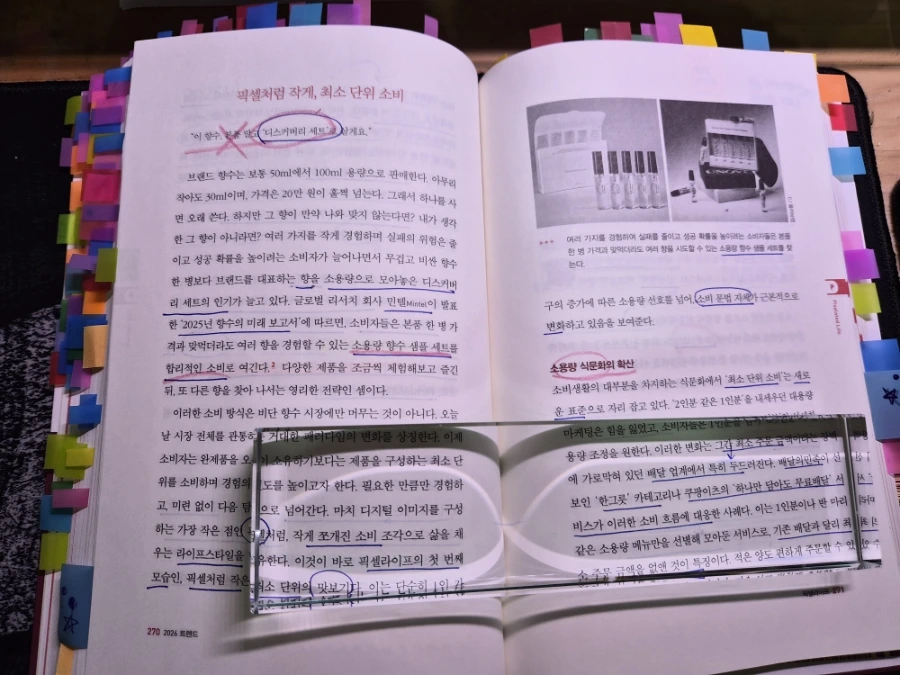 픽셀처럼 작게, 최소 단위 소비
"이 향수, 말고 '디스커버리 세트' 살게요."
브랜드 향수는 보통 50ml에서 100ml 용량으로 판매한다. 아무리
작아도 30ml이며, 가격은 20만 원이 훌쩍 넘는다. 그래서 하나를 사
면 오래 쓴다. 하지만 그 향이 만약 나와 맞지 않는다면? 내가 생각
한 그 향이 아니라면? 여러 가지를 작게 경험하며 실패의 위험은 줄
이고 성공 확률을 높이려는 소비자가 늘어나면서 무겁고 비싼 향수
한 병보다 브랜드를 대표하는 향을 소용량으로 모아놓은 디스커버
리 세트의 인기가 늘고 있다. 글로벌 리서치 회사 민텔Mintel이 발표
한 '2025년 향수의 미래 보고서'에 따르면, 소비자들은 본품 한 병 가
격과 맞먹더라도 여러 향을 경험할 수 있는 소용량 향수 샘플 세트를
합리적인 소비로 여긴다.² 다양한 제품을 조금씩 체험해보고 즐긴
뒤, 또 다른 향을 찾아 나서는 영리한 전략인 셈이다.
이러한 소비 방식은 비단 향수 시장에만 머무는 것이 아니다. 오늘
날 시장 전체를 관통하는 거대한 패러다임의 변화를 상징한다. 이제
소비자는 완제품을 소유하기보다는 제품을 구성하는 최소 단
위를 소비하며 경험의 밀도를 높이고자 한다. 필요한 만큼만 경험하
고, 미련 없이 다음 으로 넘어간다. 마치 디지털 이미지를 구성
하는 가장 작은 점인 픽셀처럼, 작게 쪼개진 소비 조각으로 삶을 채
우는 라이프스타일을 한다. 이것이 바로 픽셀라이프의 첫 번째
모습인, 픽셀처럼 작은 최소 단위의 맛보기다. 이는 단순히 1인 가
270 2026 트렌드
여러 가지를 경험하여 실패를 줄이고 성공 확률을 높이려는 소비자들은 본품
한 병 가격과 맞먹더라도 여러 향을 시도할 수 있는 소용량 향수 샘플 세트를 찾
는다.
구의 증가에 따른 소용량 선호를 넘어, 소비 문법 자체가 근본적으로
변화하고 있음을 보여준다.
소용량 식문화의 확산
소비생활의 대부분을 차지하는 식문화에서 '최소 단위 소비'는 새로
운 표준으로 자리 잡고 있다. '2인분 같은 1인분'을 내세우던 대용량
마케팅은 힘을 잃었고, 소비자들은 1인분을
용량 조정을 원한다. 이러한 변화는 그간 최소 주문 금액이라는
에 가로막혀 있던 배달 업계에서 특히 두드러진다. 배달의민족이
보인 '한그릇' 카테고리나 쿠팡이츠의 '하나만 담아도 무료배달' 서
비스가 이러한 소비 흐름에 대응한 사례다. 이는 1인분이나 반 마리
같은 소용량 메뉴만을 선별해 모아둔 서비스로, 기존 배달과 달리 최
소 주문 금액을 없앤 것이 특징이다. 적은 양도 편하게 주문할 수
271